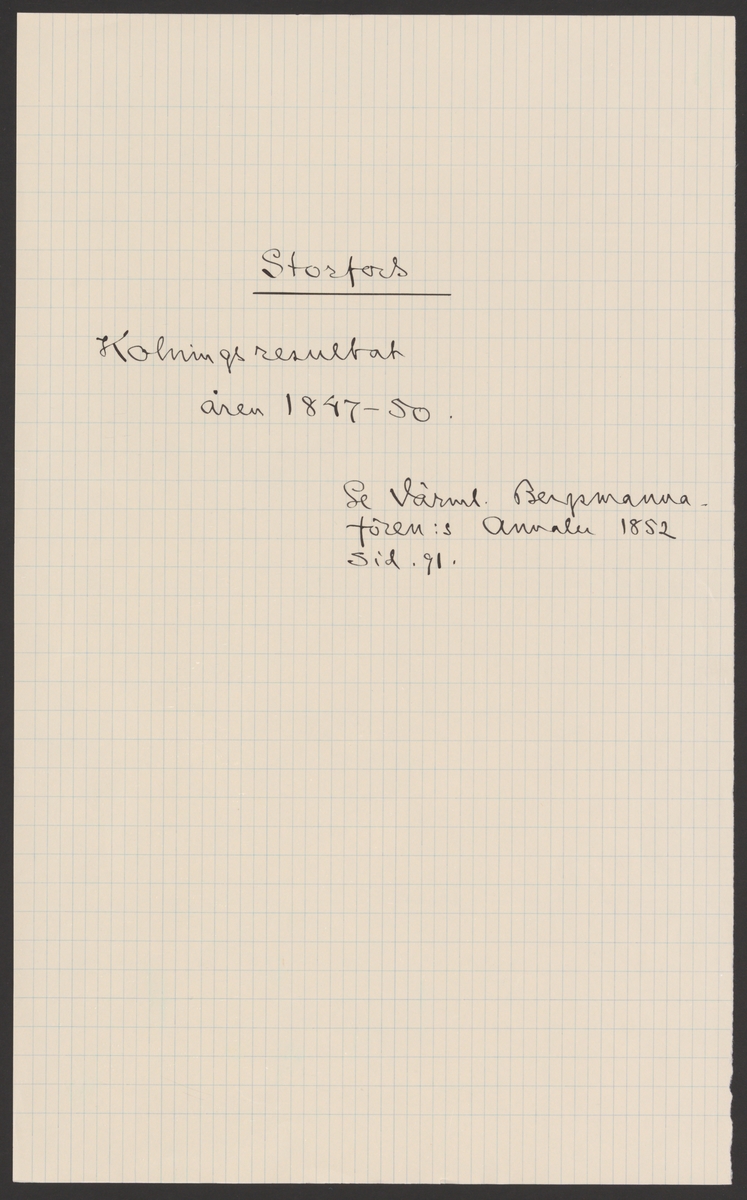 Storfors
Kolningsresultat
åren 1847-50.
Se Värml. Bergsmanna-
fören:s Annaler 1852
Sid. 91.